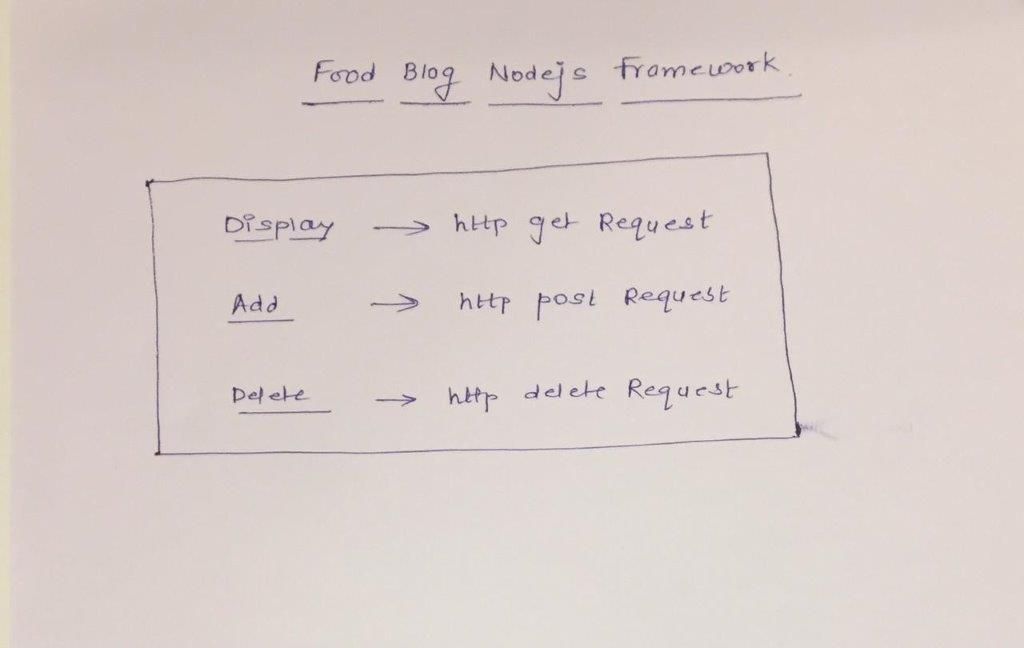 Food Blog Nodejs Framework.
Display → http get Request
Add → http post Request
Delete → http delete Request